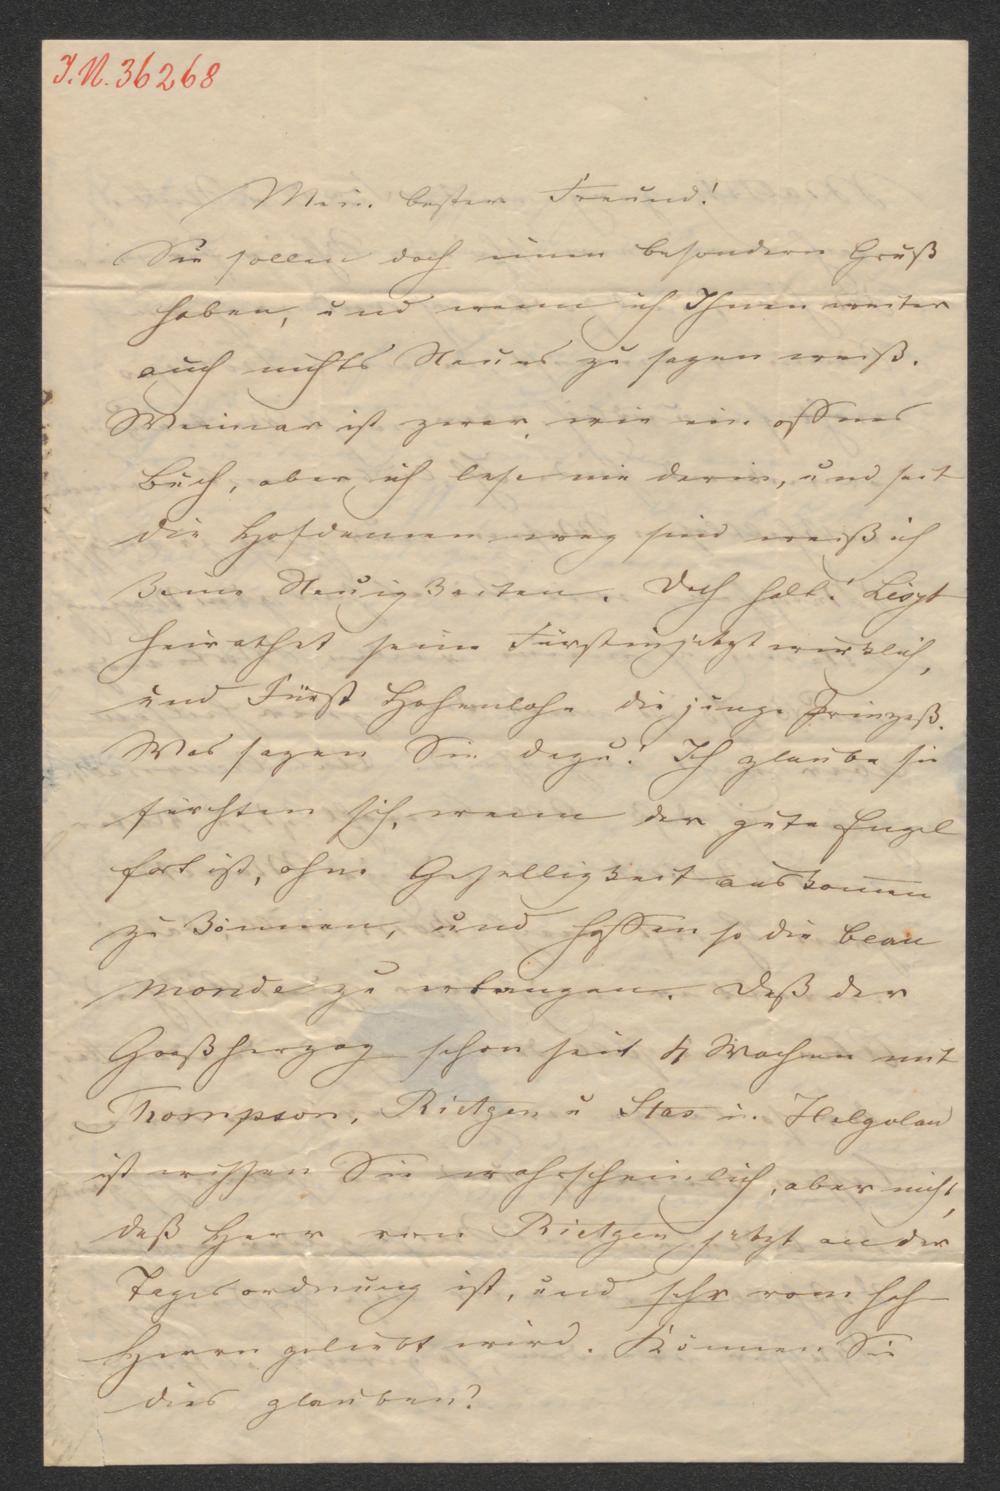 I.N. 36268
Mein bester Freund!
Sie sollen doch einen besondern Gruß
haben, und wenn ich Ihnen weiter
auch nichts Neues zu sagen weiß.
Weimar ist zwar wie ein offnes
Buch, aber ich lese nie darin, und seit
die Hofdamen weg sind weiß ich
keine Neuigkeiten. Doch halt! Liszt
heirathet seine Fürstin jetzt wirklich,
und Fürst Hohenlohe die junge Prinzeß.
Was sagen Sie dazu! Ich glaube sie
fürchten sich, wenn der gute Engel
fort ist, ohne Geselligkeit auskommen
zu können, und hoffen so die beau
monde zu erlangen. Daß der
Großherzog schon seit 4 Wochen mit
Thompson, Rietgen u Stas in Helgoland
ist wissen Sie wahrscheinlich, aber nicht,
daß Herr von Rietgen jetzt an der
Tagesordnung ist, und sehr vom hoh
Herrn geliebt wird. Können Sie
dies glauben?